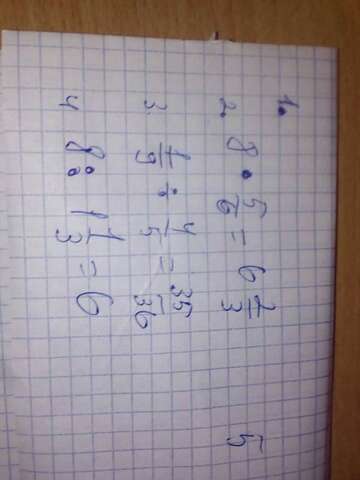 1.
2. 8 · 5/6 = 6 2/3 5
3. 7/9 : 4/5 = 35/36
4 8 : 1 1/3 = 6